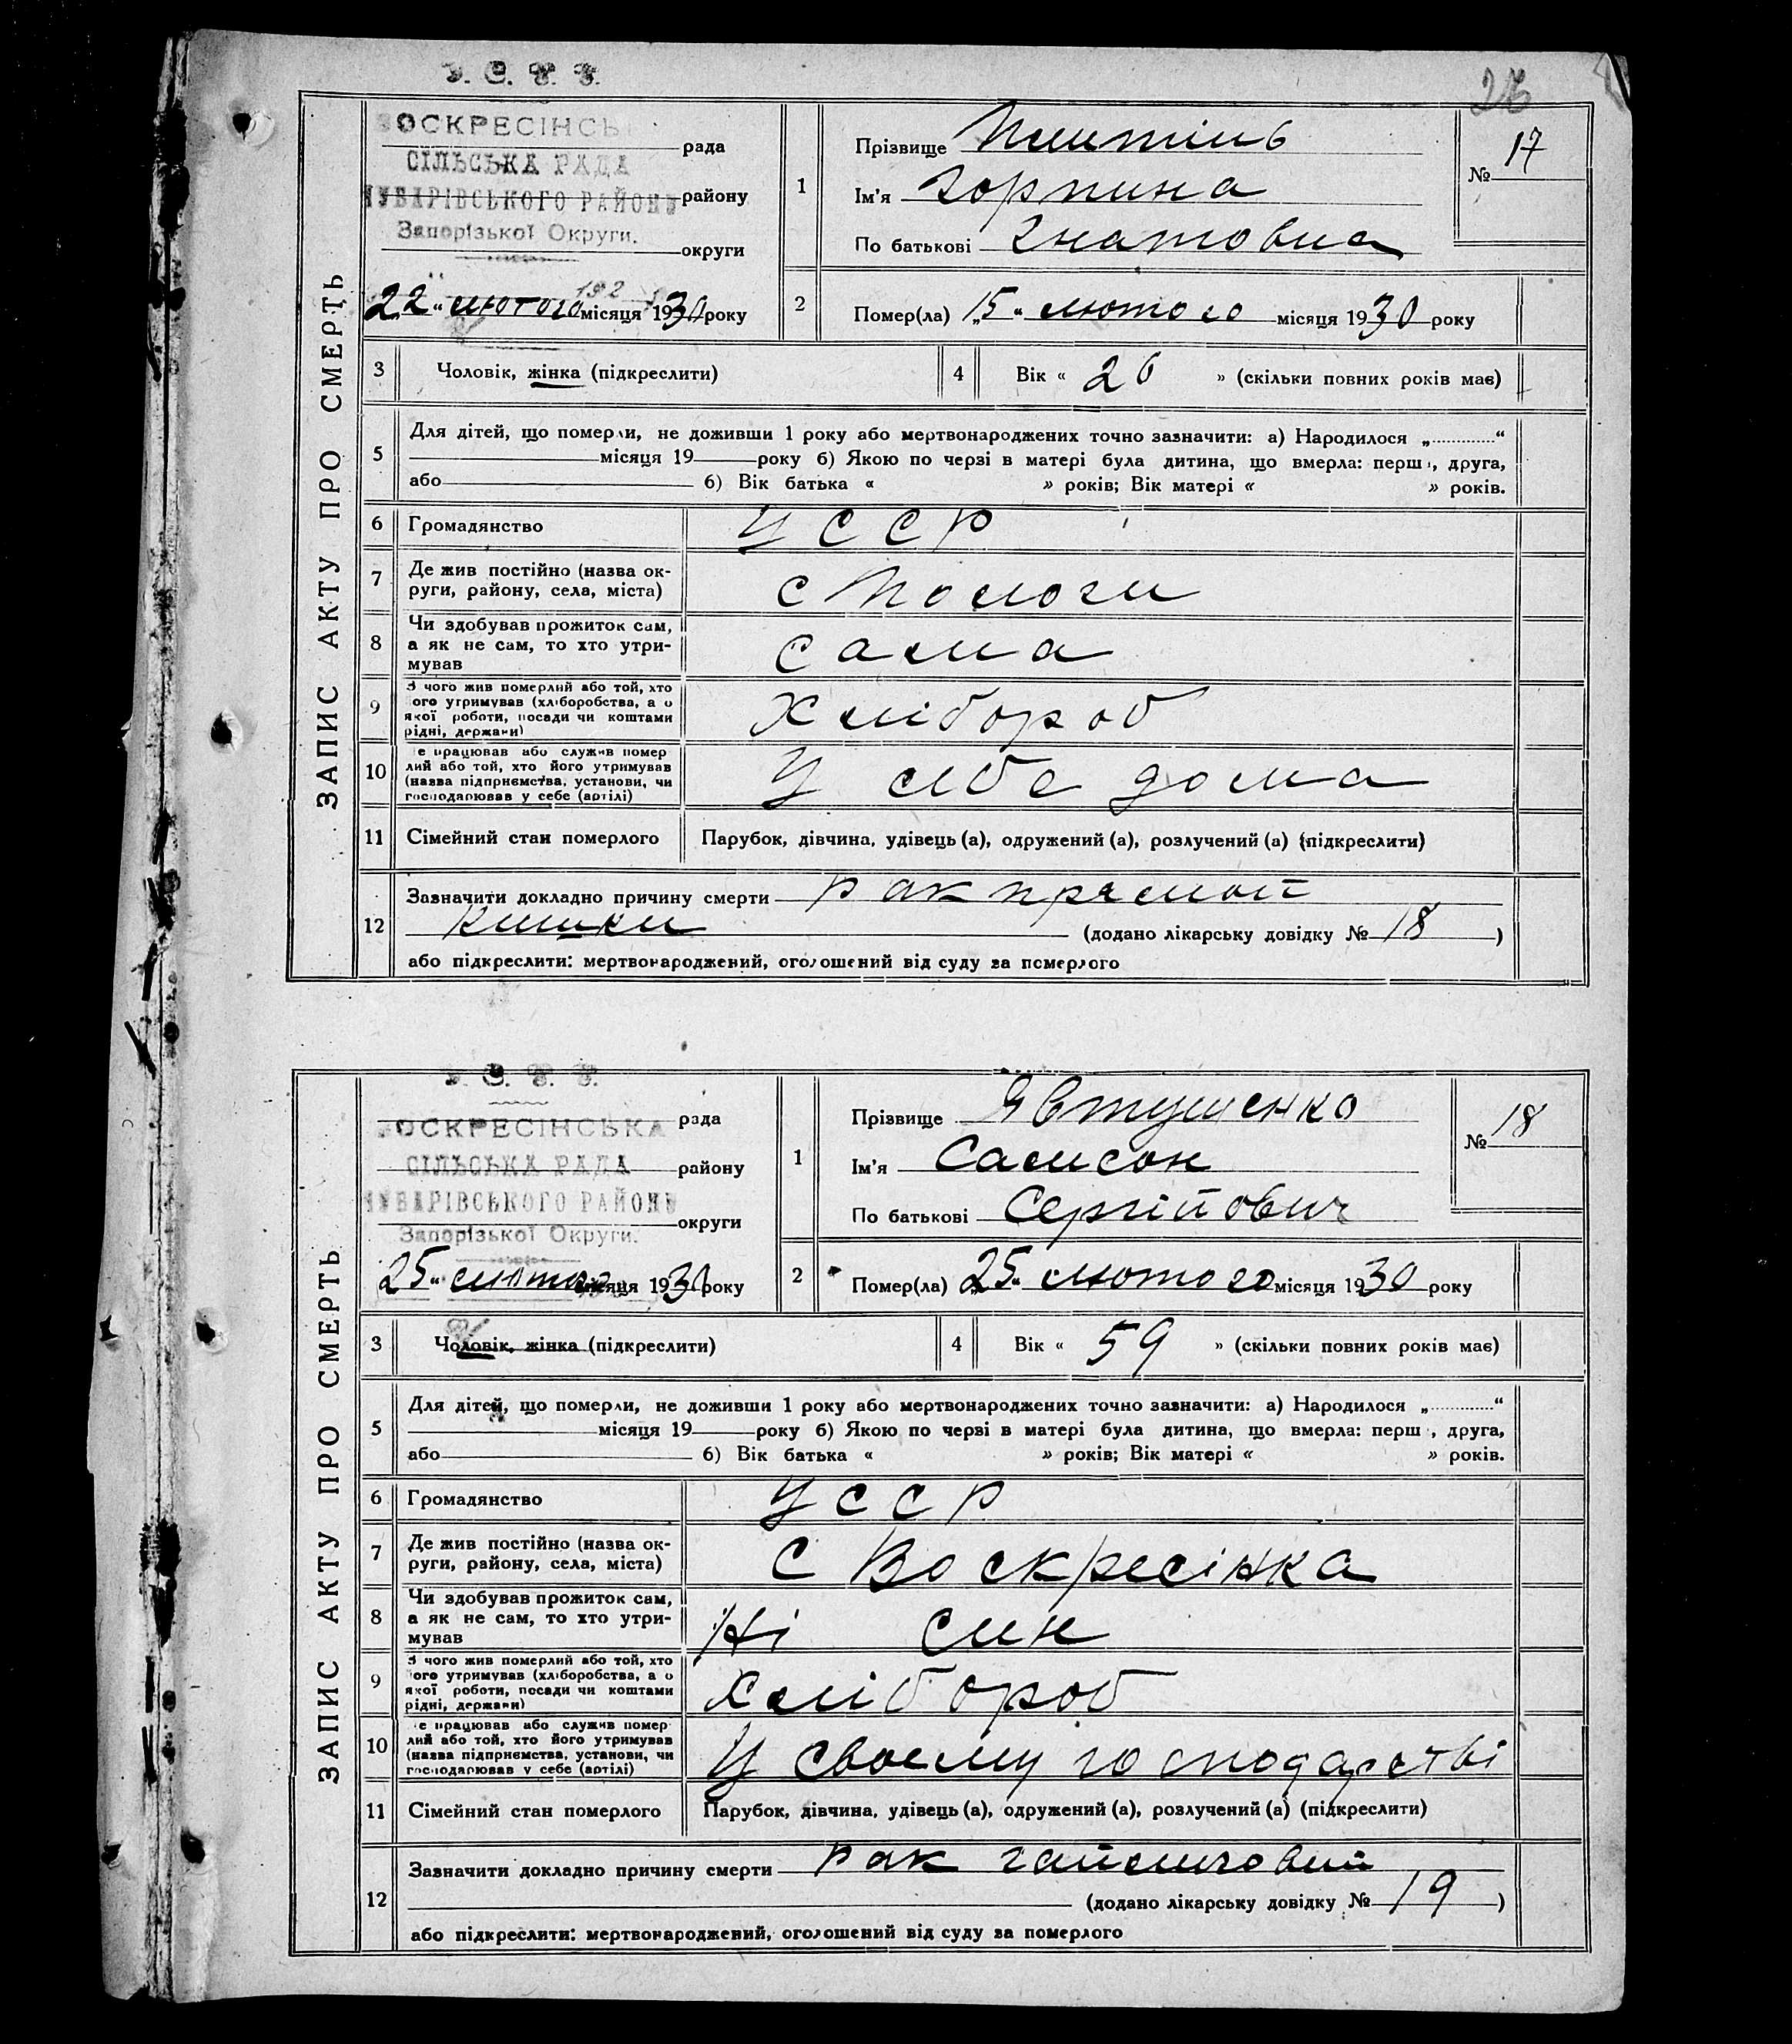 У. С. Р. Р.
26
ВОСКРЕСІНСЬ
рада
СІЛЬСЬКА РАДА
ЧУБАРІВСЬКОГО РАЙОНУ району
Запорізької Округи.
округи
„22“ лютого місяця 1930 року
1
Прізвище
Ім'я Горпина
По батькові Гнатовна
№ 17
2
Помер(ла) „15“ лютого місяця 1930 року
ЗАПИС АКТУ ПРО СМЕРТЬ
3 Чоловік, жінка (підкреслити)
4 Вік « 26 » (скільки повних років має)
5 Для дітей, що померли, не доживши 1 року або мертвонароджених точно зазначити: а) Народилося „ “
місяця 19 року б) Якою по черзі в матері була дитина, що вмерла: перша, друга,
або б) Вік батька « » років; Вік матері « » років.
6 Громадянство УССР
7 Де жив постійно (назва ок-
руги, району, села, міста) с Пологи
8 Чи здобував прожиток сам,
а як не сам, то хто утри-
мував сама
9 З чого жив померлий або той, хто
його утримував (хліборобства, а о
якої роботи, посади чи коштами
рідні, держави) Хлібороб
10 Де працював або служив помер
лий або той, хто його утримував
(назва підприємства, установи, чи
господарював у себе (артілі) У себе дома
11 Сімейний стан померлого Парубок, дівчина, удівець (а), одружений (а), розлучений (а) (підкреслити)
12 Зазначити докладно причину смерти рак прямой
кишки (додано лікарську довідку № 18 )
або підкреслити: мертвонароджений, оголошений від суду за померлого
У. С. Р. Р.
ВОСКРЕСІНСЬКА рада
СІЛЬСЬКА РАДА району
ЧУБАРІВСЬКОГО РАЙОНУ
округи
Запорізької Округи.
„25“ лютого місяця 1930 року
1
Прізвище Явтушенко
Ім'я Самсон
По батькові Сергійович
№ 18
2
Помер(ла) „25“ лютого місяця 1930 року
ЗАПИС АКТУ ПРО СМЕРТЬ
3 Чоловік, жінка (підкреслити)
4 Вік « 59 » (скільки повних років має)
5 Для дітей, що померли, не доживши 1 року або мертвонароджених точно зазначити: а) Народилося „ “
місяця 19 року б) Якою по черзі в матері була дитина, що вмерла: перша, друга,
або б) Вік батька « » років; Вік матері « » років.
6 Громадянство УССР
7 Де жив постійно (назва ок-
руги, району, села, міста) с Воскресінка
8 Чи здобував прожиток сам,
а як не сам, то хто утри-
мував Ні син
9 З чого жив померлий або той, хто
його утримував (хліборобства, а о
якої роботи, посади чи коштами
рідні, держави) Хлібороб
10 Де працював або служив помер
лий або той, хто його утримував
(назва підприємства, установи, чи
господарював у себе (артілі) У своєму господарстві
11 Сімейний стан померлого Парубок, дівчина, удівець (а), одружений (а), розлучений (а) (підкреслити)
12 Зазначити докладно причину смерти рак
(додано лікарську довідку № 19 )
або підкреслити: мертвонароджений, оголошений від суду за померлого